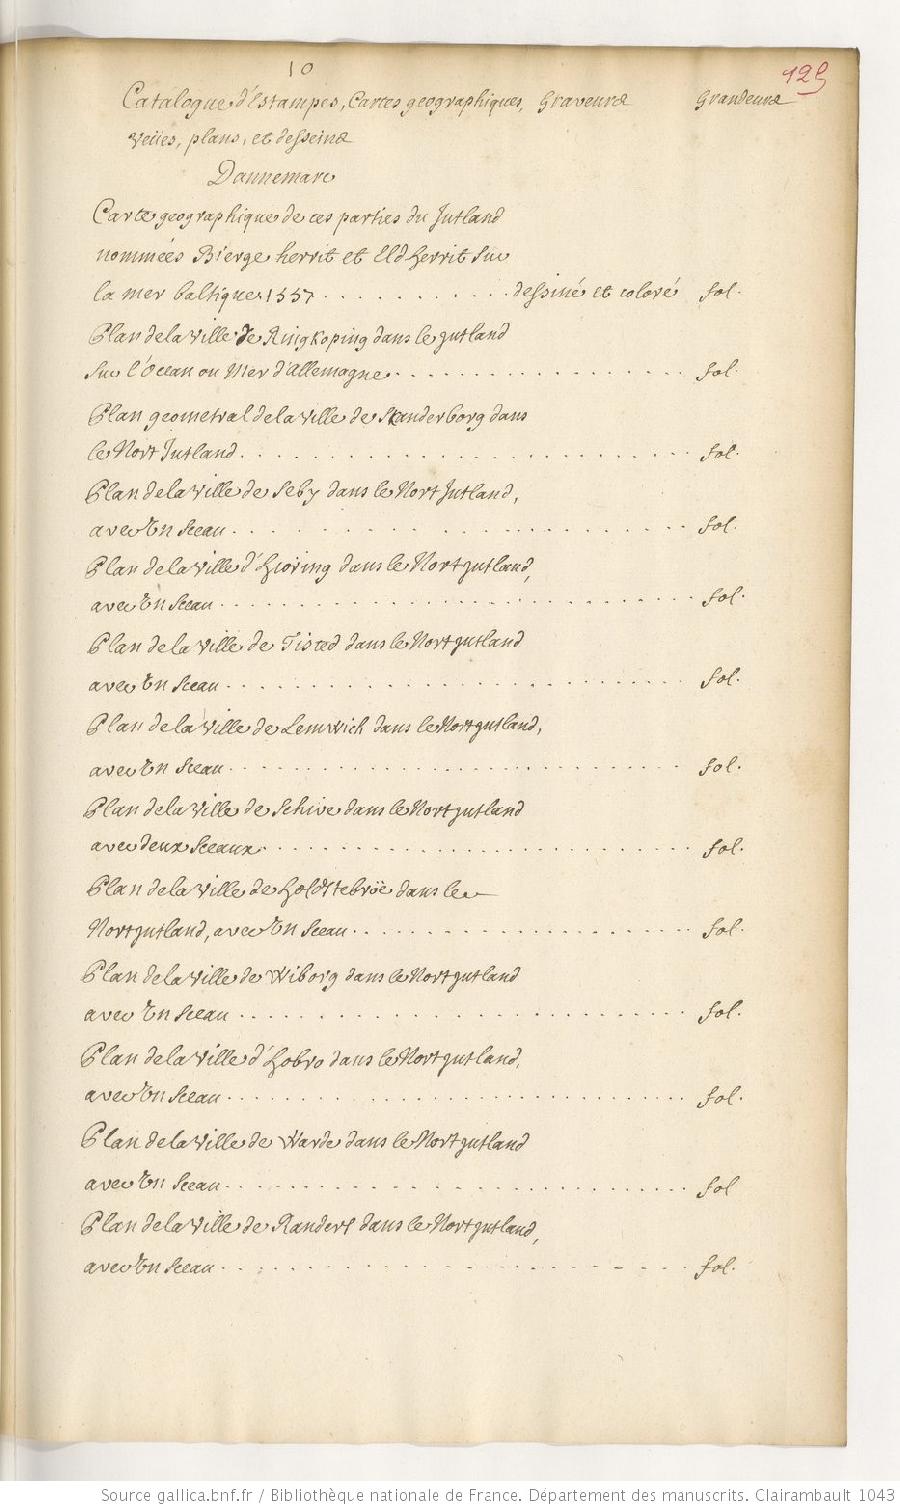 10
125
Catalogue d'Estampes, Cartes geographiques, Graveurs Grandeurs
Veües, plans, et desseins
Dannemarc
Carte geographique de ces parties du Jutland
nommées Bierge herrit et Eld herrit sur
la mer baltique 1557 . . . . . . . . . . . dessiné et coloré fol.
Plan de la Ville de Ringkoping dans le Jutland
sur l'Ocean ou Mer d'Allemagne . . . . . . . . . . . . fol.
Plan geometral de la Ville de Skanderborg dans
le Nort Jutland . . . . . . . . . . . . . . . . . . fol.
Plan de la Ville de Seby dans le Nort Jutland,
avec Vn sceau . . . . . . . . . . . . . . . . . . fol.
Plan de la Ville d'Hioring dans le Nort jutland,
avec Vn sceau . . . . . . . . . . . . . . . . . . fol.
Plan de la Ville de Tisted dans le Nort jutland
avec Vn sceau . . . . . . . . . . . . . . . . . . fol.
Plan de la Ville de Lemwich dans le Nort jutland,
avec Vn sceau . . . . . . . . . . . . . . . . . . fol.
Plan de la Ville de Schive dans le Nort jutland
avec deux sceaux . . . . . . . . . . . . . . . . . fol.
Plan de la Ville de Holdstebröe dans le
Nort jutland, avec Vn sceau . . . . . . . . . . . . . fol.
Plan de la Ville de Wiborg dans le Nort jutland
avec Vn sceau . . . . . . . . . . . . . . . . . . fol.
Plan de la Ville d'Hobro dans le Nort jutland,
avec Vn sceau . . . . . . . . . . . . . . . . . . fol.
Plan de la Ville de Warde dans le Nort jutland
avec Vn sceau . . . . . . . . . . . . . . . . . . fol
Plan de la Ville de Randers dans le Nort jutland,
avec Vn sceau . . . . . . . . . . . . . . . . . . fol.
Source gallica.bnf.fr / Bibliothèque nationale de France. Département des manuscrits. Clairambault 1043